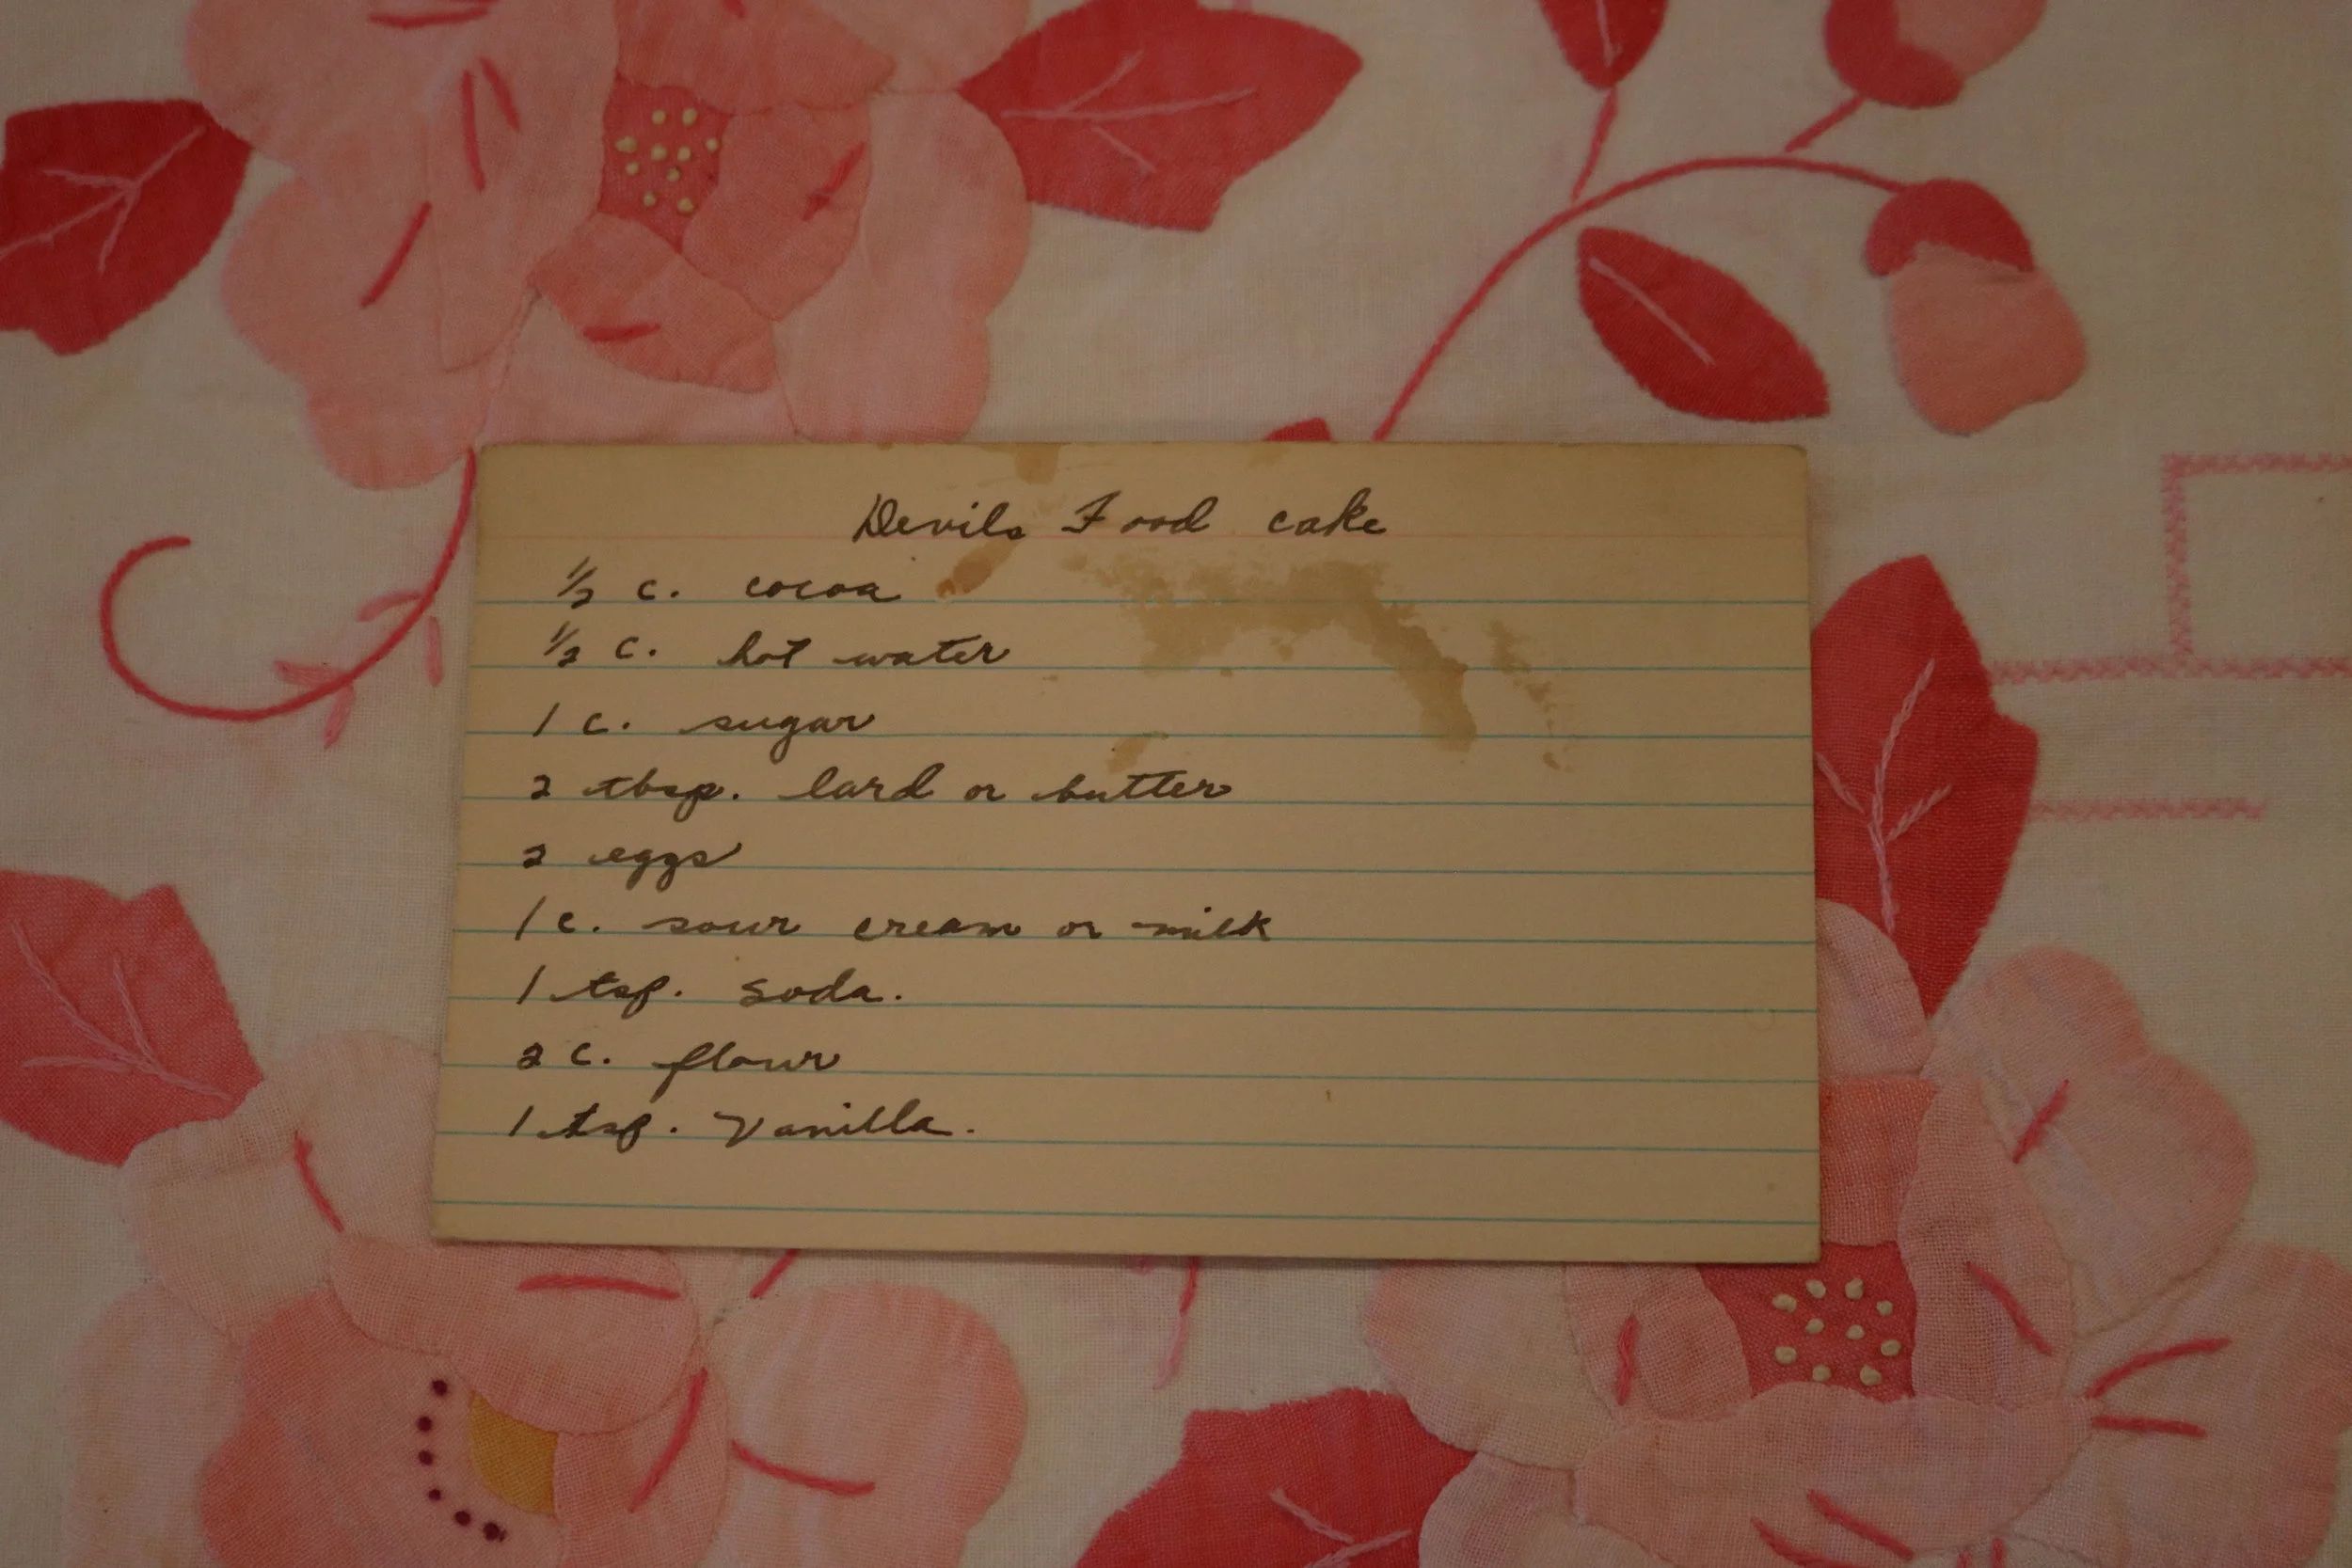 Devils Food cake
1/2 c. cocoa
1/2 c. hot water
1 c. sugar
2 tbsp. lard or butter
2 eggs
1 c. sour cream or milk
1 tsp. soda.
2 c. flour
1 tsp. Vanilla.